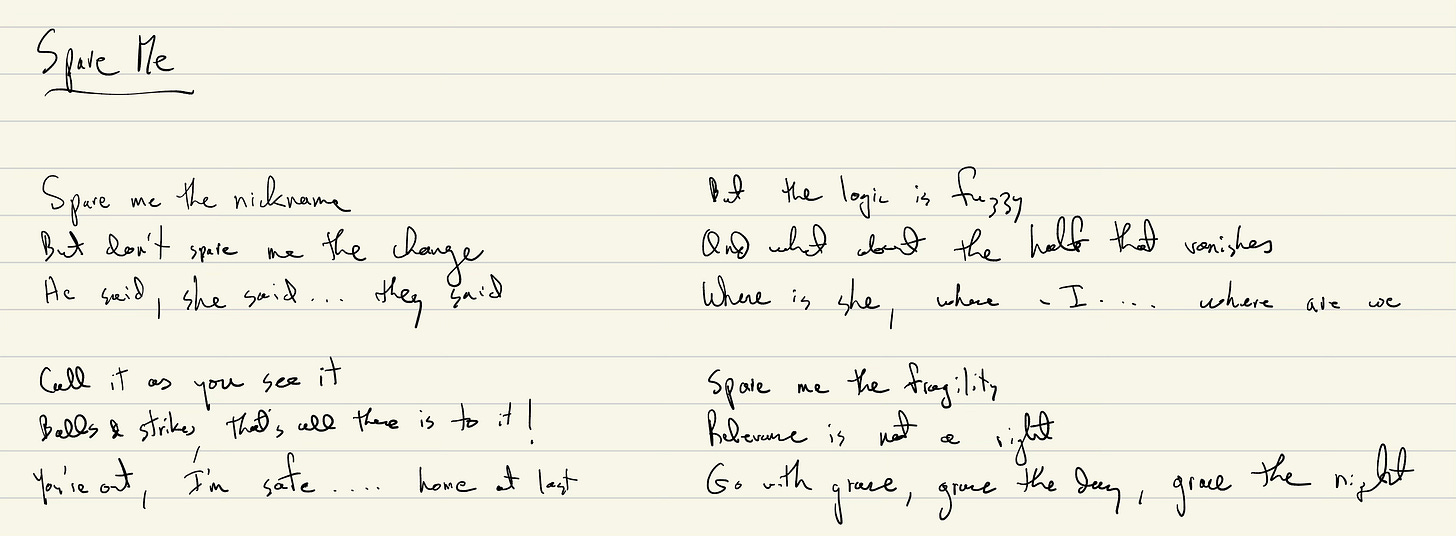 Spare Me
Spare me the nickname
But don't spare me the change
He said, she said... they said
Call it as you see it
Balls & strikes, that's all there is to it!
You're out, I'm safe.... home at last
But the logic is fuzzy
And what about the half that vanishes
Where is she, where - I.... where are we
Spare me the fragility
Relevance is not a right
Go with grace, grace the day, grace the night